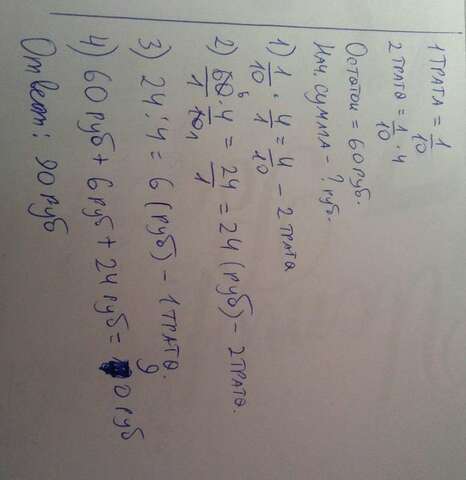 1 трата = 1/10
2 трата = 1/10 · 4
Остаток = 60 руб.
Нач. сумма - ? руб.
1) 1/10 · 4/1 = 4/10 - 2 трата
2) 60/1 · 4/10 = 24/1 = 24 (руб) - 2 трата.
3) 24 : 4 = 6 (руб) - 1 трата.
4) 60 руб + 6 руб + 24 руб = 90 руб
Ответ: 90 руб